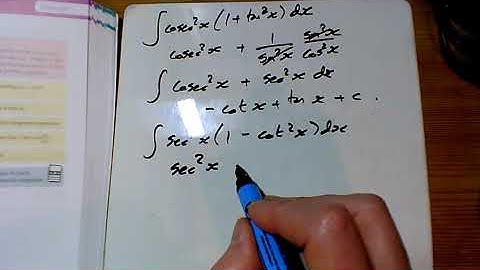 ∫ cosec²x (1 + tan²x) dx
cosec²x + 1/sin²x sin²x/cos²x
∫ cosec²x + sec²x dx
- cot x + tan x + c.
∫ sec²x (1 - cot²x) dx
sec²x